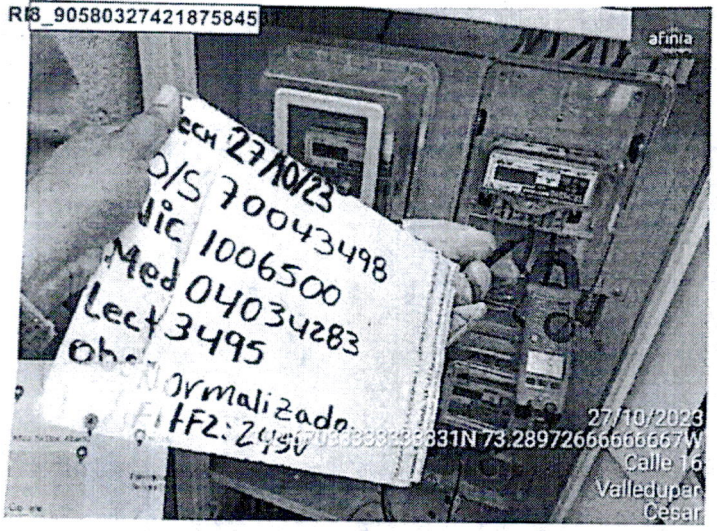 RI3_90580327421875845
afinia
27/10/23
O/S 70043498
Nic 1006500
Med 04034283
Lect 3495
Normalizado.
27/10/2023
73.28972666666667W
Calle 16
Valledupar
Cesar